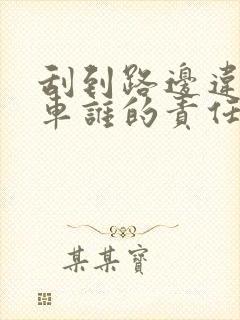 刮到路邊違
車誰的責任
某某寶